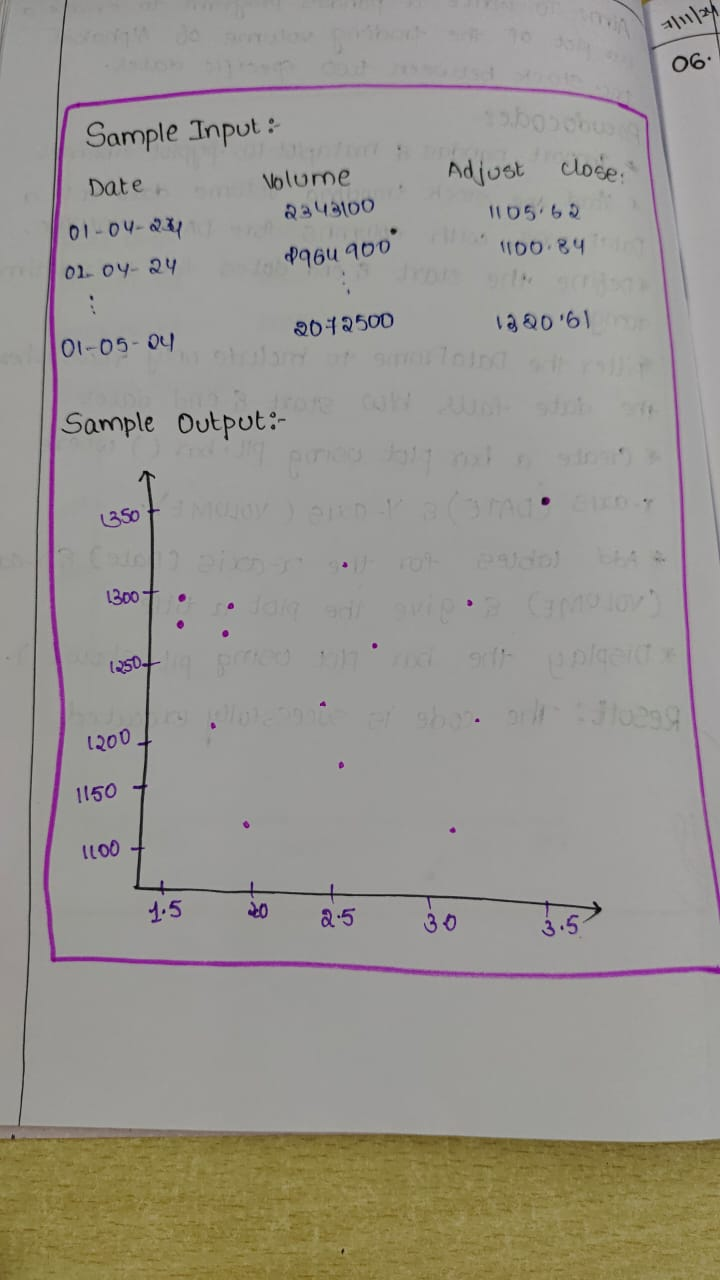 7/11/24
06.
Sample Input :-
Date Volume Adjust Close:
01-04-24 2343100 1105.62
02-04-24 900 1100.84
01-05-24 2072500 1220.61
Sample Output:-
1350
1300
1250
1200
1150
1100
1.5 20 2.5 30 3.5